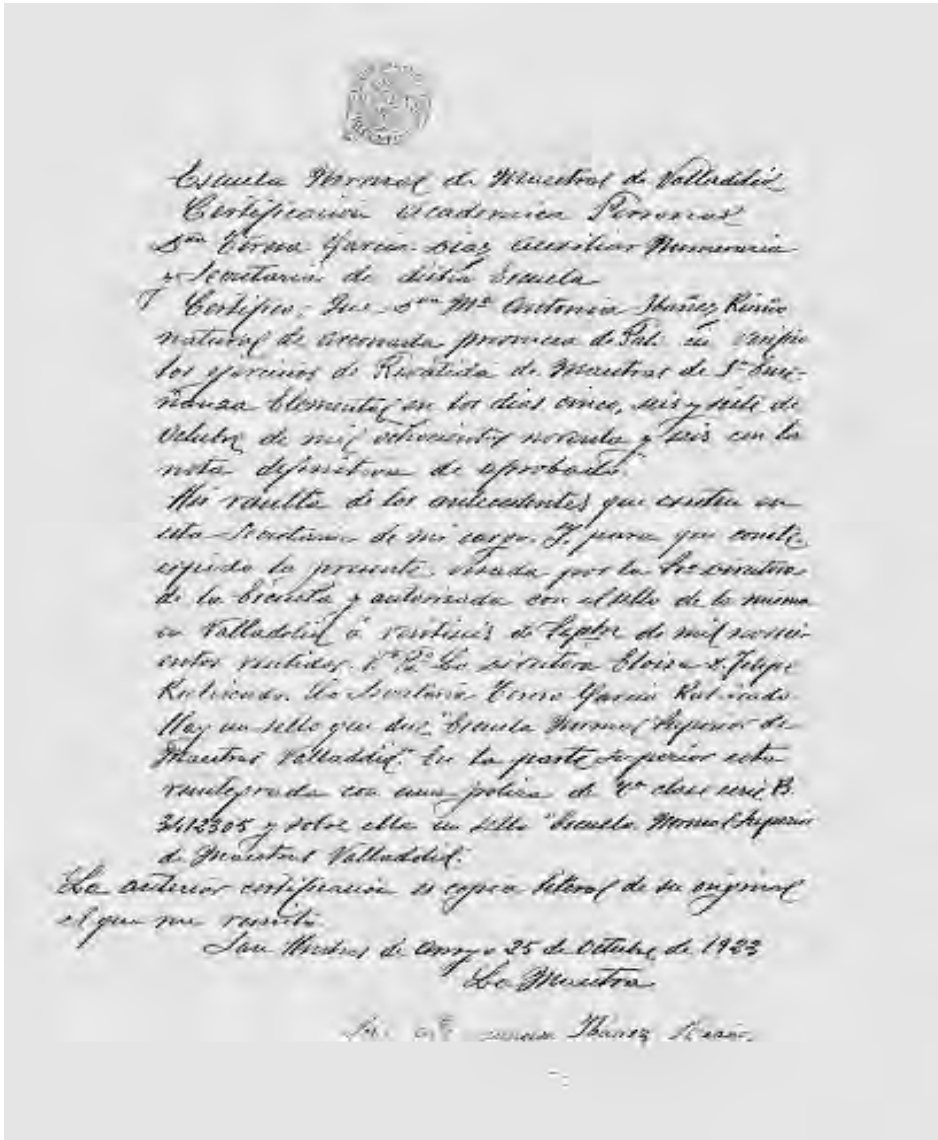 Escuela Normal de Maestras de Valladolid
Certificación Academica Personal
Dña Teresa Garcia Diaz Auxiliar Numeraria
y Secretaria de dicha Escuela
Certifico: Que Dña Mª Antonia Ibañez
natural de provincia de en
los ejercicios de Reválida de Maestras de 1ª Ense-
ñanza Elemental en los dias cinco, seis y siete de
Octubre de mil ochocientos noventa y seis con la
nota definitiva de aprobado.
Asi resulta de los antecedentes que constan en
esta Secretaria de mi cargo. Y, para que conste
expido la presente visada por la Directora
de la Escuela y autorizada con el sello de la misma
en Valladolid á veintiseis de Septbre de mil noveci-
entos veintidos. Vº Bº La Directora Eloisa
Rubricado. La Secretaria Teresa Garcia Rubricado.
Hay un sello que dice "Escuela Normal Superior de
Maestras Valladolid." En la parte superior esta
reintegrada con una poliza de clase serie B.
3412305 y sobre ella un sello "Escuela Normal Superior
de Maestras Valladolid."
La anterior certificación es copia literal de su original
el que me remito
San Andres de Arroyo 25 de Octubre de 1923
La Maestra
Ibañez